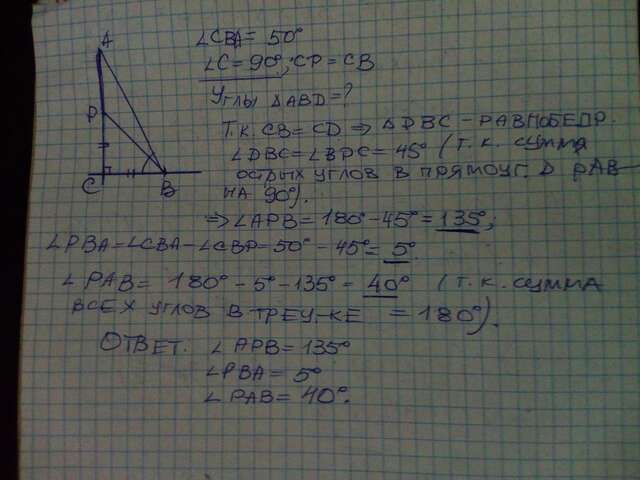 A
P
C
B
∠CBA = 50°
∠C = 90°, CP = CB
Углы ΔABD = ?
Т.К. CB = CD ⇒ ΔDBC - РАВНОБЕДР.
∠DBC = ∠BPC = 45° (Т.К. СУММА
ОСТРЫХ УГЛОВ В ПРЯМОУГ. Δ РАВ-
НА 90°).
⇒ ∠APB = 180° - 45° = 135°;
∠PBA = ∠CBA - ∠CBP = 50° - 45° = 5°.
∠PAB = 180° - 5° - 135° = 40° (Т.К. СУММА
ВСЕХ УГЛОВ В ТРЕУ-КЕ = 180°).
ОТВЕТ. ∠APB = 135°
∠PBA = 5°
∠PAB = 40°.